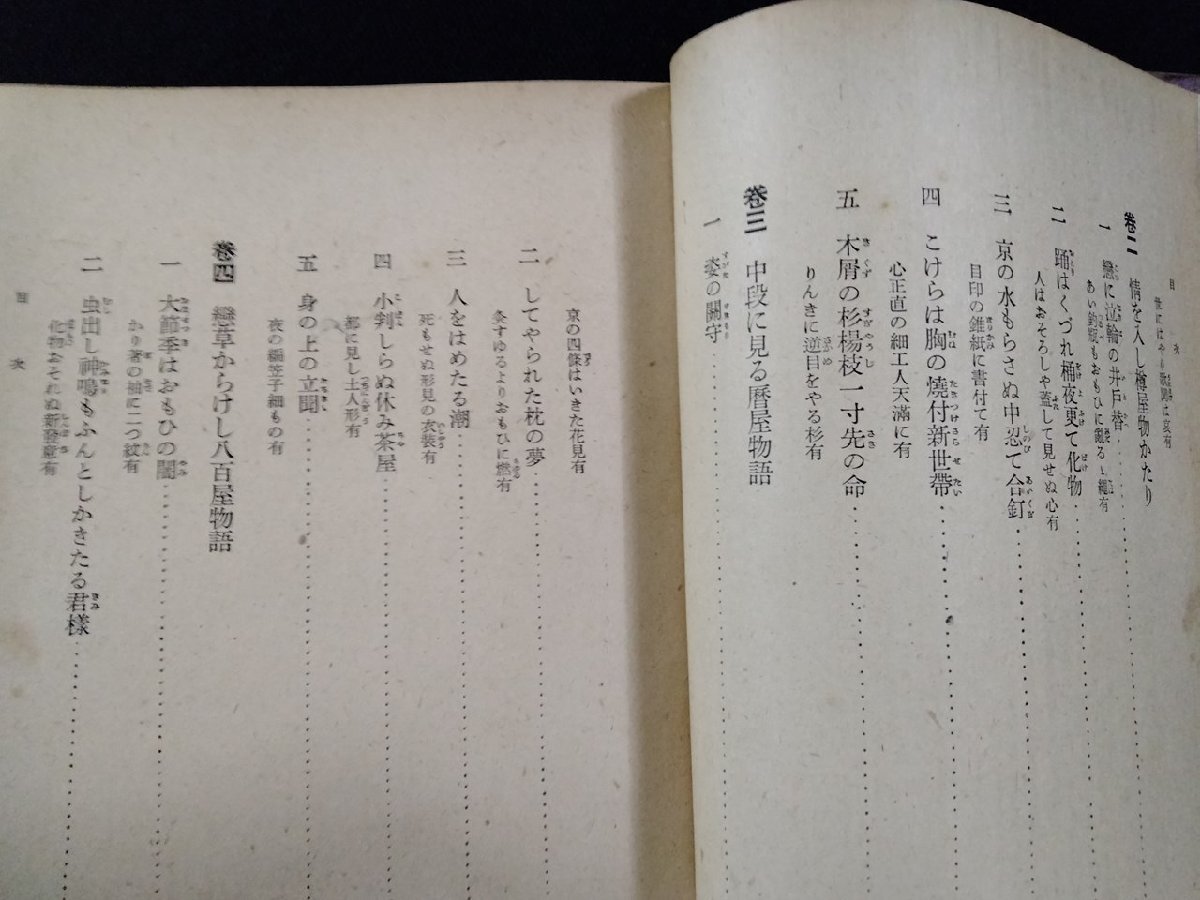 目次
世にはやり歌聞は哀有
巻二 情を入し樽屋物かたり
一 戀に泣輪の井戸替
あい釣瓶もおもひに亂るゝ繩有
二 踊はくづれ桶夜更て化物
人はおそろしや蓋して見せぬ心有
三 京の水もらさぬ中忍て合釘
目印の錐紙に書付て有
四 こけらは胸の燒付新世帶
心正直の細工人天滿に有
五 木屑の杉楊枝一寸先の命
りんきに逆目をやる杉有
巻三 中段に見る暦屋物語
一 姿の關守
京の四條はいきた花見有
二 してやられた枕の夢
灸すゆるよりおもひに燃有
三 人をはめたる潮
死もせぬ形見の衣裝有
四 小判しらぬ休み茶屋
都に見し土人形有
五 身の上の立聞
夜の編笠子細もの有
巻四 戀草からけし八百屋物語
一 大節季はおもひの闇
かり着の袖に二つ紋有
二 虫出し神鳴もふんとしかきたる君樣
化物おそれぬ新發意有
目次